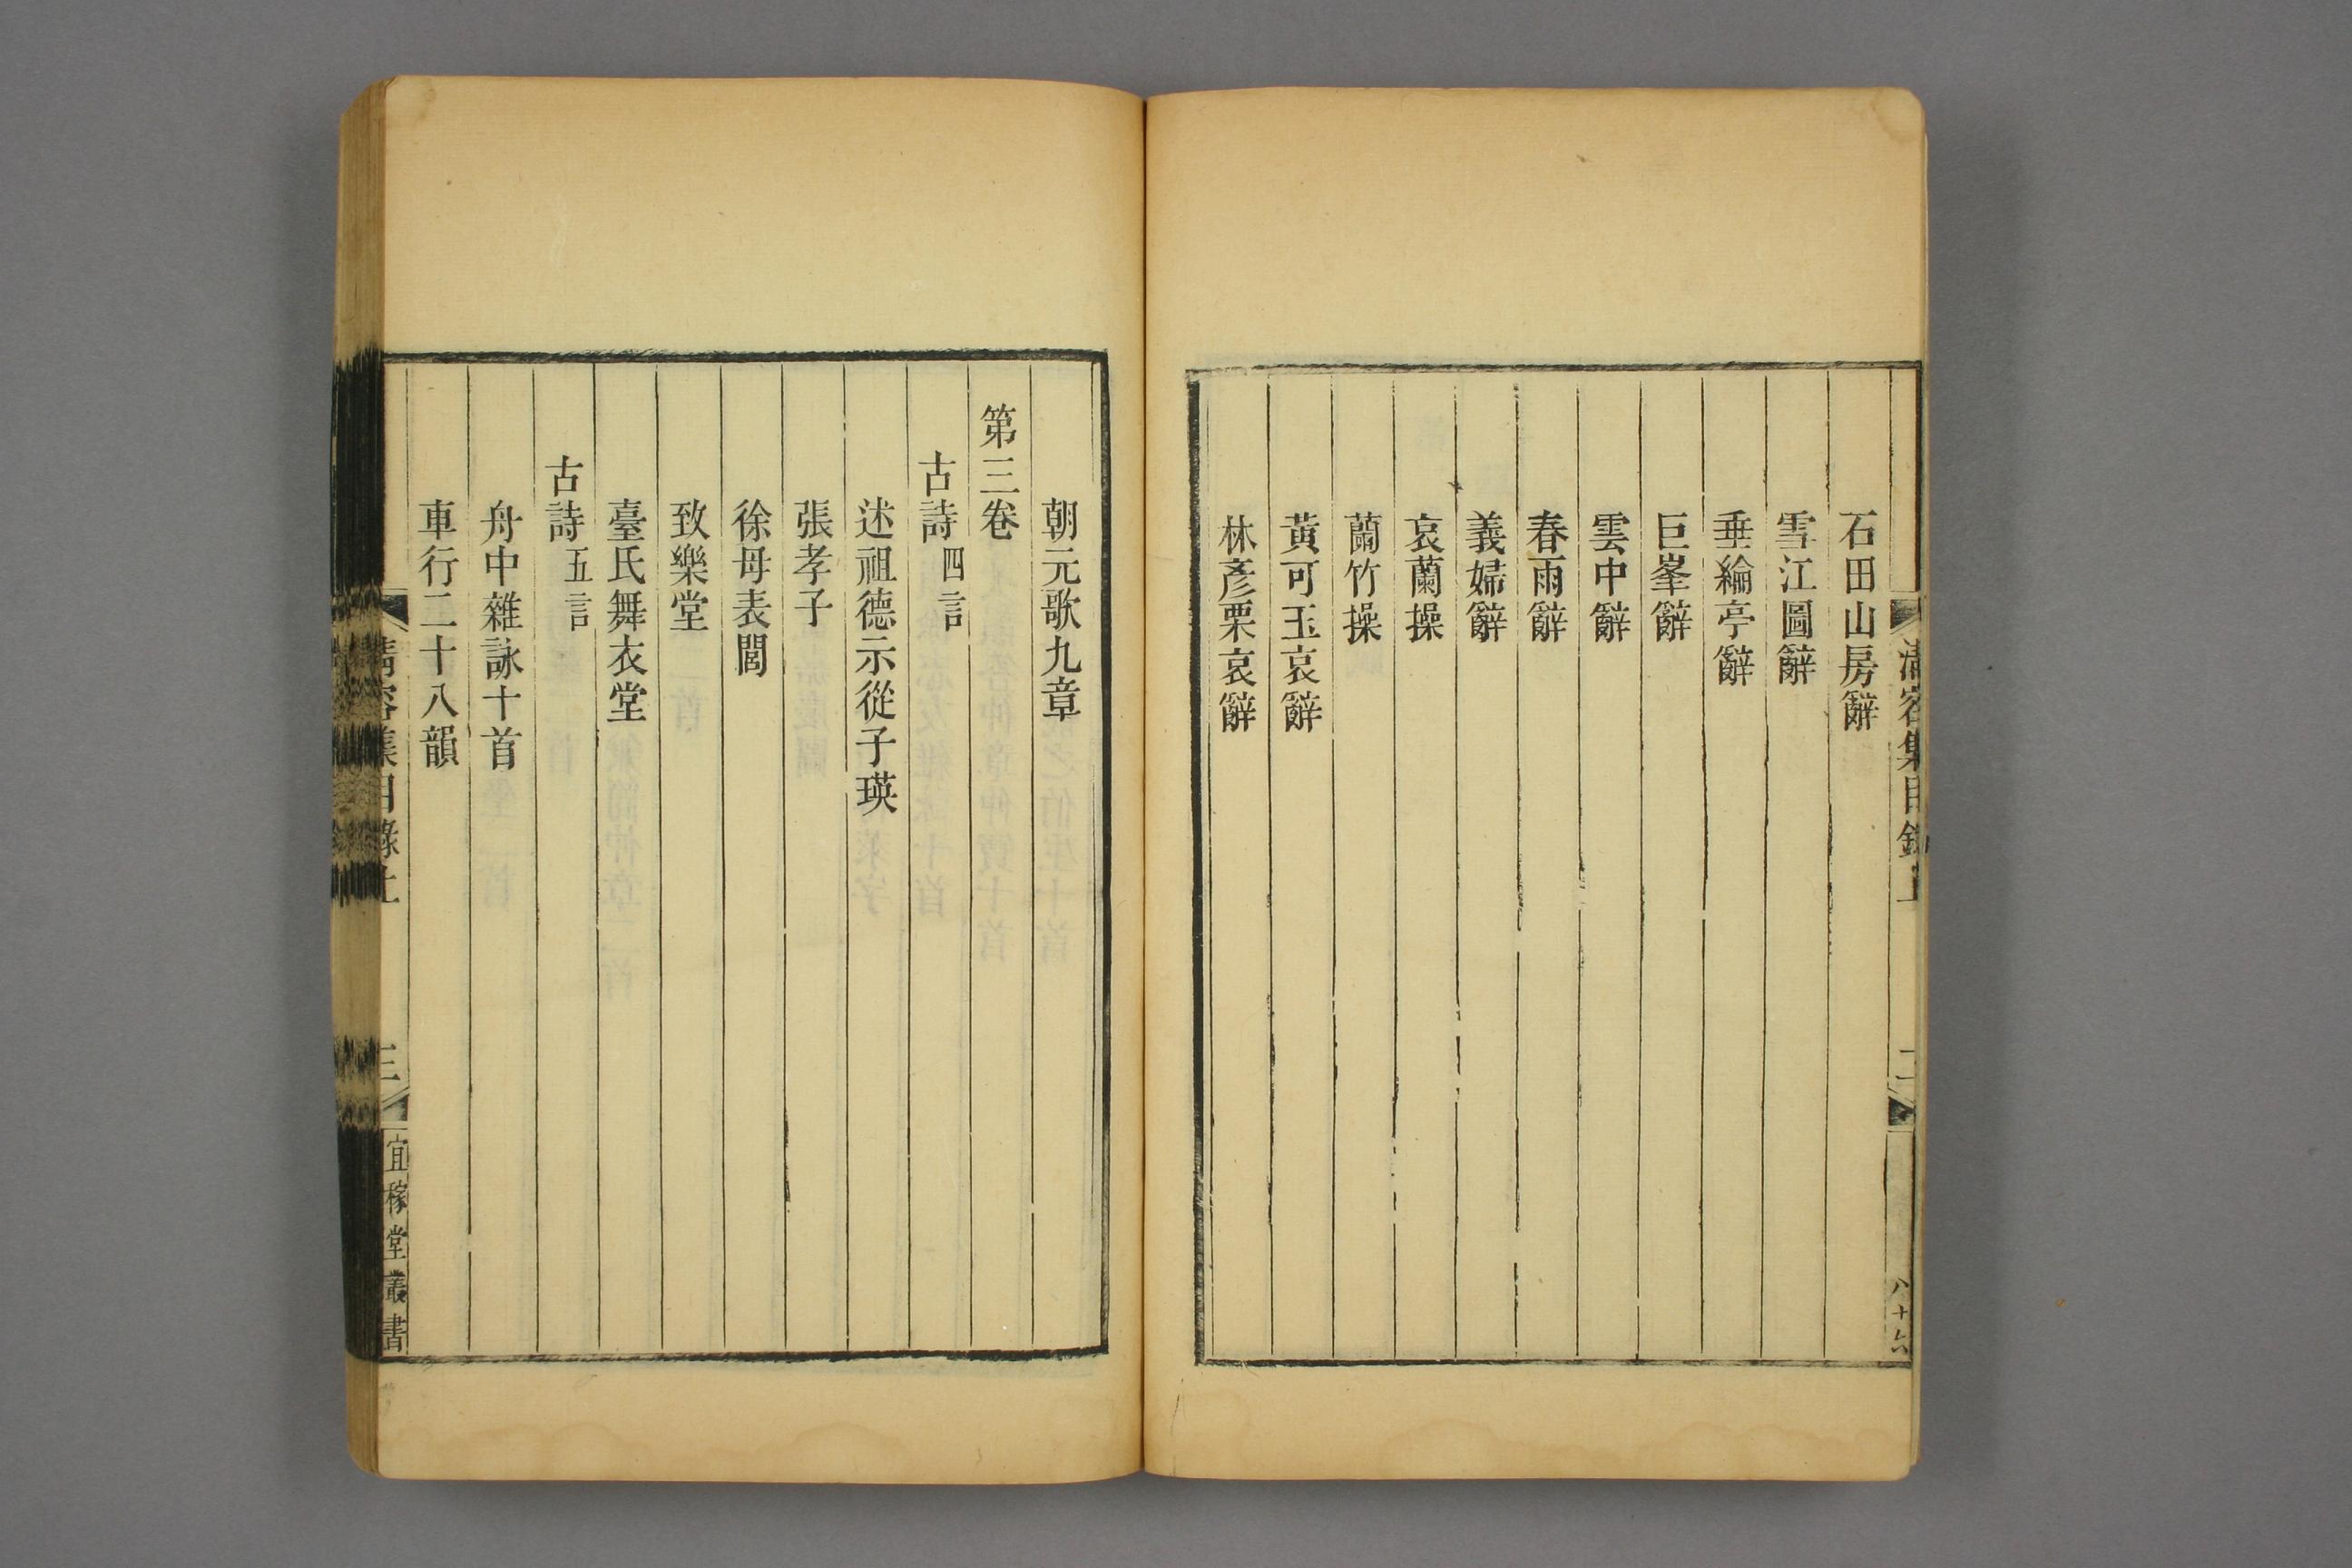 清容集目錄上
二
八十六
石田山房辭
雪江圖辭
垂綸亭辭
巨峯辭
雲中辭
春雨辭
義婦辭
哀蘭操
蘭竹操
黃可玉哀辭
林彥栗哀辭
朝元歌九章
第三卷
古詩四言
述祖德示從子瑛
張孝子
徐母表閭
致樂堂
臺氏舞衣堂
古詩五言
舟中雜詠十首
車行二十八韻
清容集目錄上
三
宜稼堂叢書